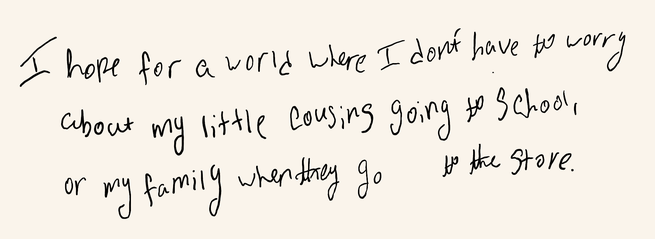 I hope for a world where I don't have to worry
about my little cousins going to School,
or my family when they go to the store.